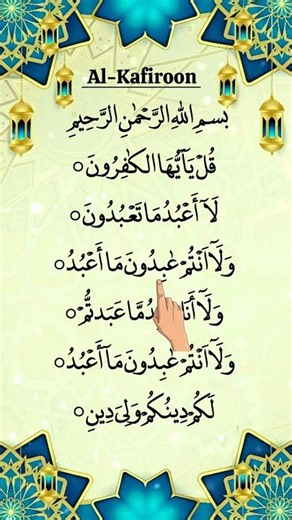 Al-Kafiroon
بِسْمِ اللهِ الرَّحْمٰنِ الرَّحِيْمِ
قُلْ يٰٓاَيُّهَا الْكٰفِرُوْنَ ○
لَآ اَعْبُدُ مَا تَعْبُدُوْنَ ○
وَلَآ اَنْتُمْ عٰبِدُوْنَ مَآ اَعْبُدُ ○
وَلَآ اَنَا۠ مَّا عَبَدْتُّمْ ○
وَلَآ اَنْتُمْ عٰبِدُوْنَ مَآ اَعْبُدُ ○
لَكُمْ دِيْنُكُمْ وَلِيَ دِيْنِ ○